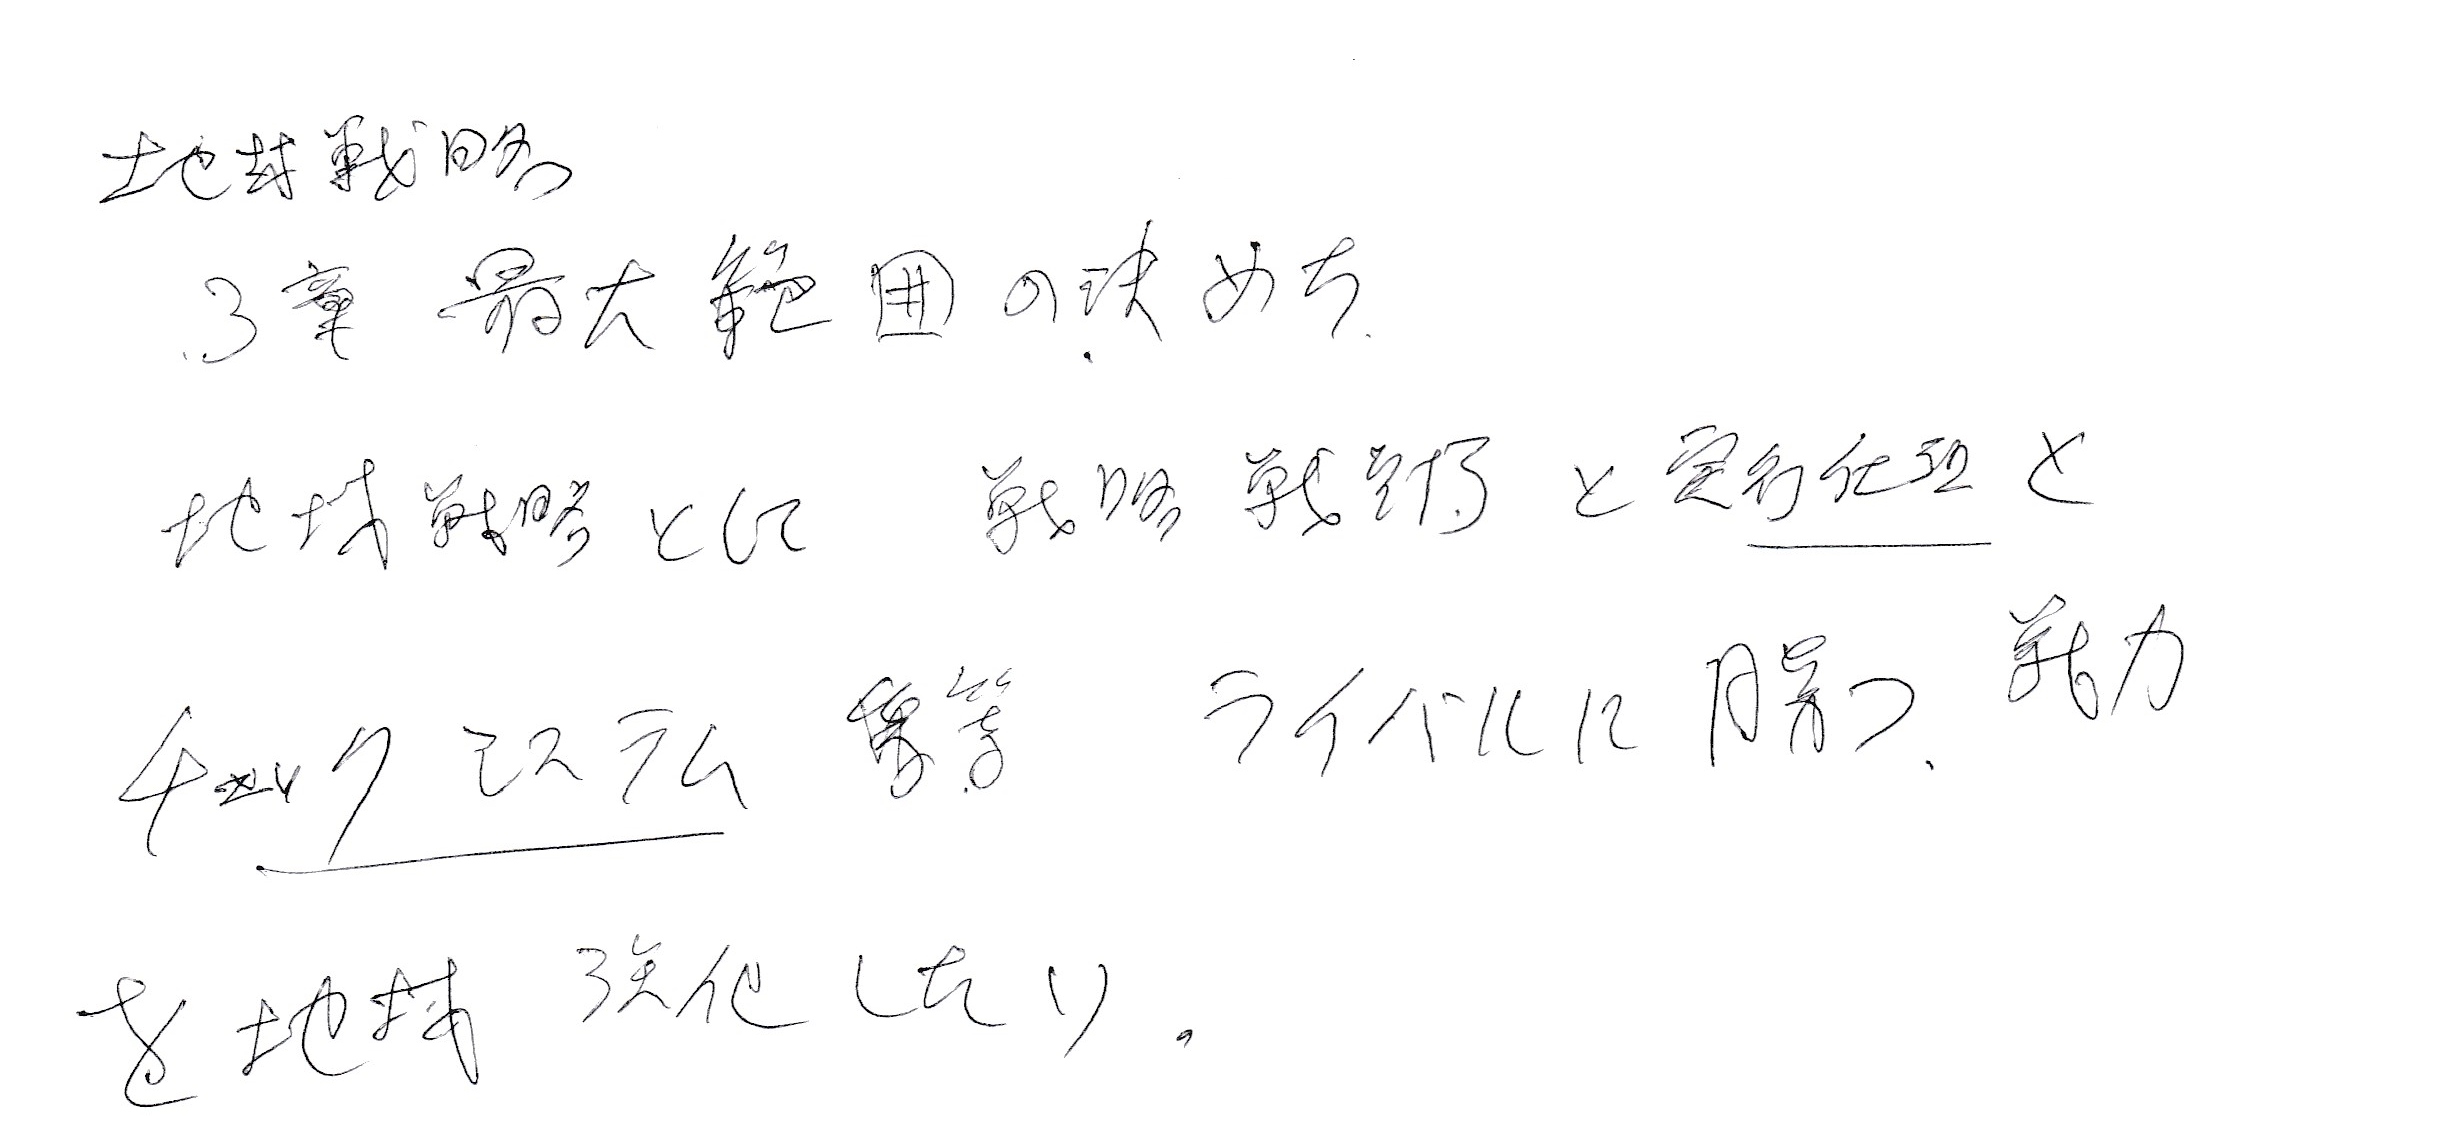 地域戦略
3章 最大範囲の決め方
地域戦略として 戦略戦術と実行
チェックシステム 等 ライバルに勝つ 戦力
を地域 強化したい。